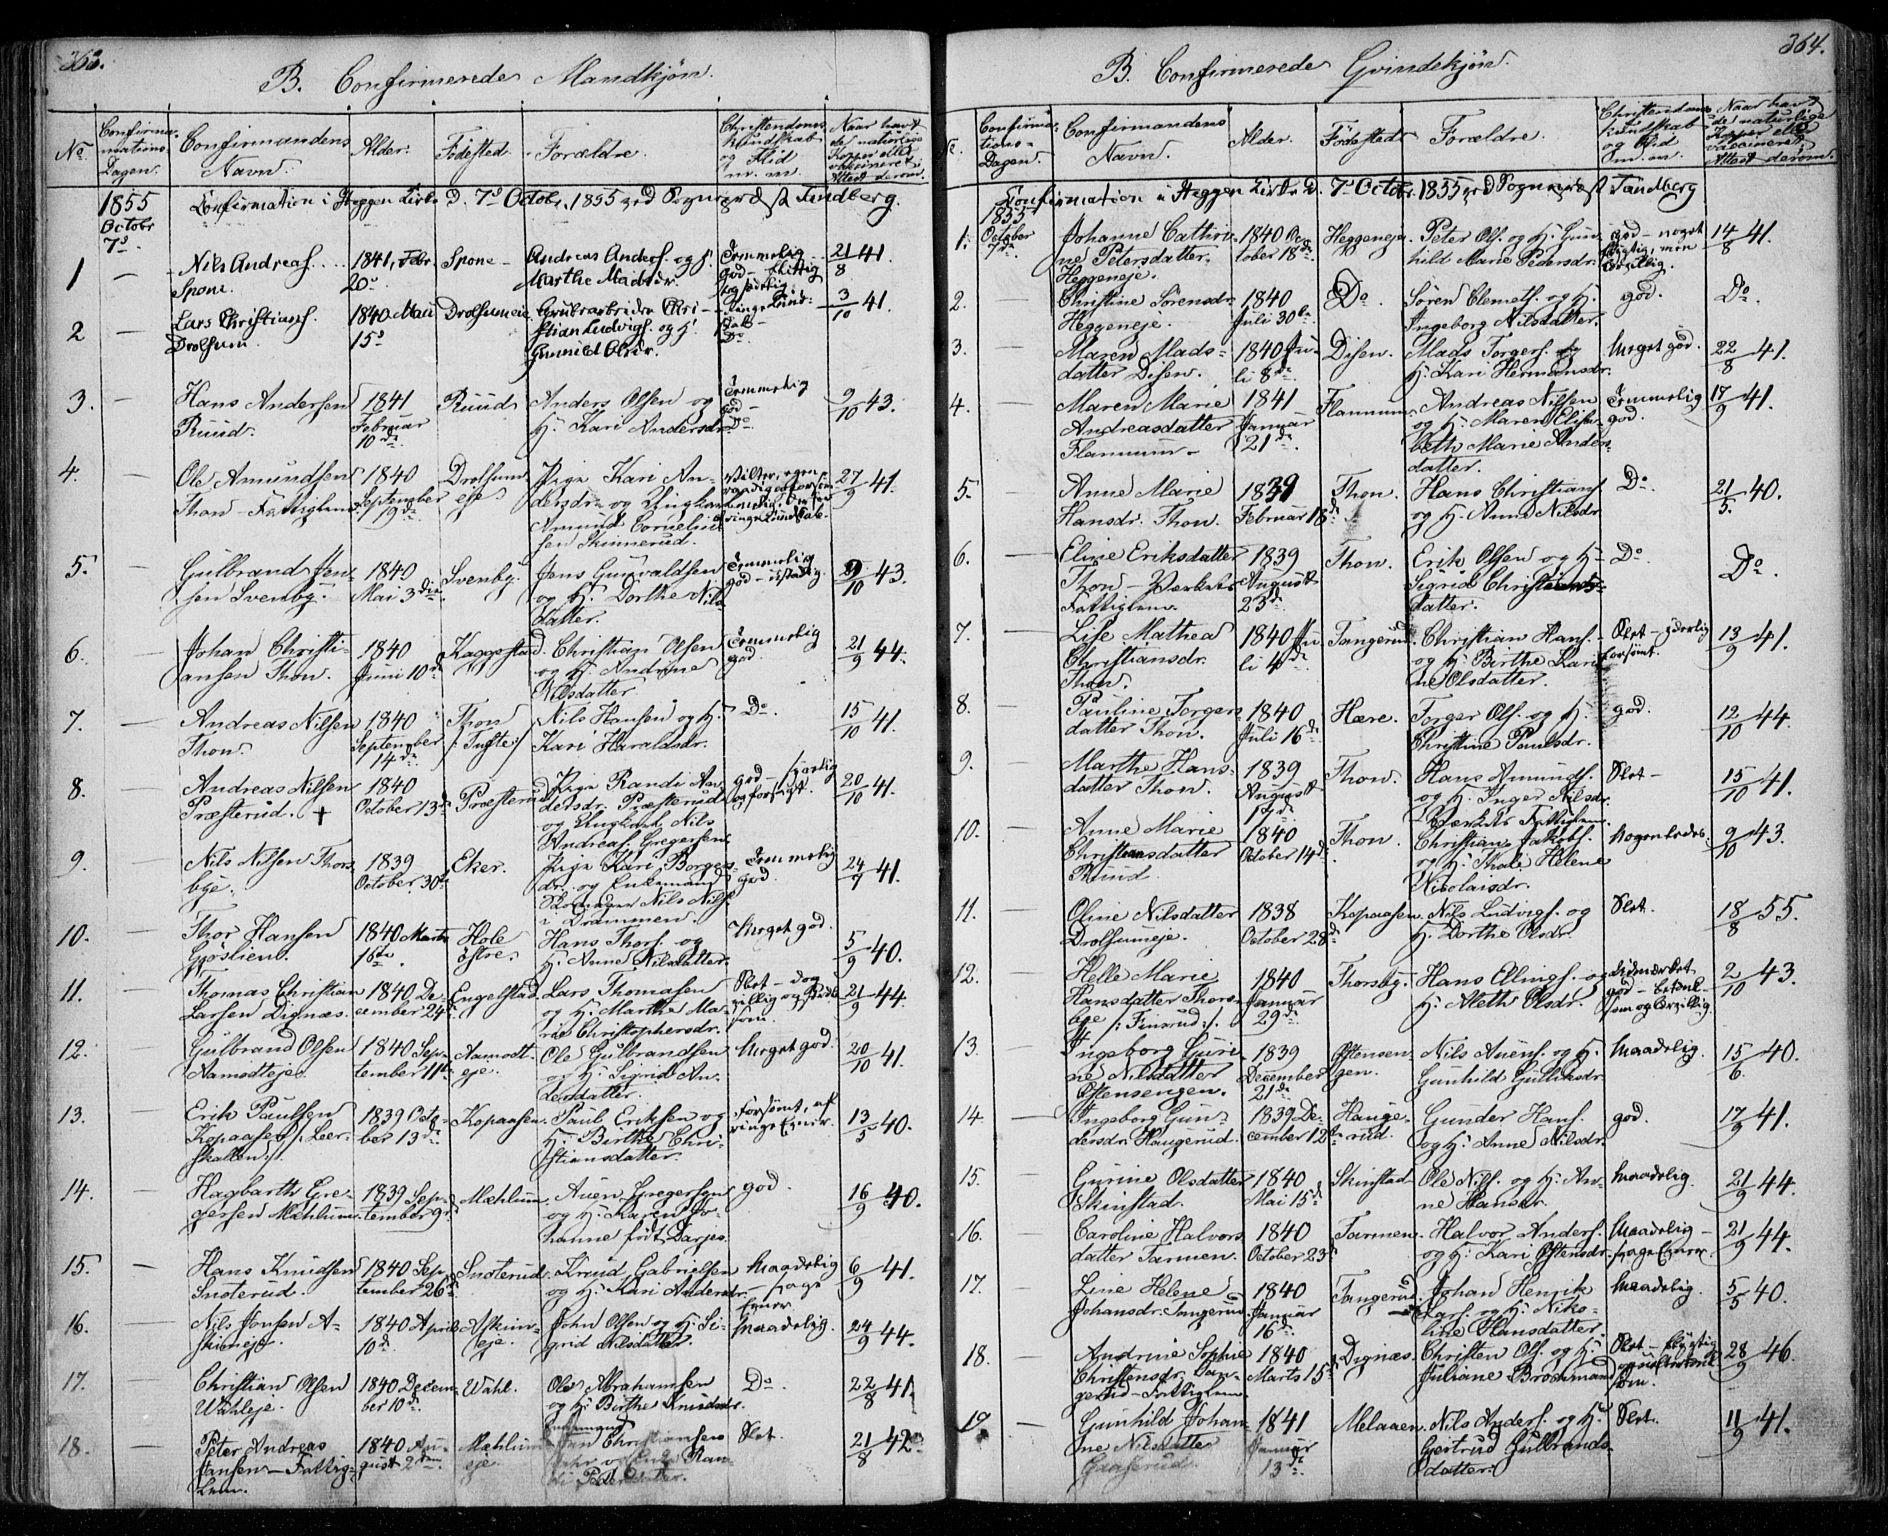 363.
B. Confirmerede Mandkjøn.
No. Confirmations-Dagen. Confirmandens Navn. Alder. Fødested. Forældre. Christendoms Kundskab og Flid m.m. Naar havt de naturlige Kopper eller vaccineret; Attest derom.
1855 October 7de
Confirmation i Heggen Kirke D. 7d Octobr. 1855 ved Sognepræst Tandberg.
1 — Nils Andreas. Spone. 1841, Febr. 20d Spone Andreas Anders. og H. Marthe Madsdr. Temmelig god — flittig 21/8 41.
2 Lars Christians. Drolsum 1840 Mai 15d Drolsumeie Grubearbeider Christian Ludvigs. og H. Gunnild Olsdr. ringe Kundskab — Do. 3/10 41.
3. — Hans Andersen Ruud. 1841 Februar 10de Ruud Anders Olsen og H. Kari Andersdr. Temmelig god — Do. 9/10 43.
4. — Ole Amundsen Thon — Fattiglem 1840 September 19de Drolsumeje Pige Kari Andersdr. og Ungkarl Amund Cornelius­sen Skinnerud. 27/9 41.
5. — Gulbrand Jensen Svenby. 1840 Mai 3die Svenby. Jens Gunvaldsen og H. Dorthe Nilsdatter. Temmelig god — ustadig 9/10 43.
6. — Johan Christiansen Thon. 1840 Juni 10de Kaggestad Christian Olsen og H. Andrine Nilsdatter Temmelig god. 21/9 44.
7. — Andreas Nilsen Thon. 1840 September 14de Thon /: Tufte :/ Nils Hansen og H. Kari Haraldsdr. Do. 15/10 41.
8. — Andreas Nilsen Præsterud. + 1840 October 13d Præsterud Pige Randi Andersdr. Præsterud og Ungkarl Nils Andreas Gregersen god — 20/10 41.
9. — Nils Nilsen Thorsbye. 1839 October 30te Eker. Pige Kari Borgesdr. og Enkemand Nils Nils. i Drammen. Temmelig god. 24/7 41.
10. — Thor Hansen Gjøslien. 1840 Marts 16de Hole østre. Hans Thors. og H. Anne Nilsdatter. Meget god. 5/9 40.
11. — Thomas Christian Larsen Dignæs. 1840 December 24d Engelstad. Lars Thomasen og H. Marthe Marie Christophersdr. Slet — dog villig og 21/9 44.
12. — Gulbrand Olsen Aamodteje. 1840 September 11te Aamodteje. Ole Gulbrandsen og H. Sigrid Andersdatter. Meget god. 20/10 41.
13. — Erik Paulsen Kopaasen /: Leerskallen :/. 1839 October 13de Kopaasen. Paul Eriksen og H. Birthe Christiansdatter. Forsømt, af ringe Evner. 13/5 40.
14. — Hagbarth Gregersen Mæhlum. 1839 September 9d Mæhlum Auen Gregersen og H. Karen Johanne født Darjes. god. 16/9 40.
15. — Hans Knudsen Snoterud. 1840 September 26d Snoterud. Knud Gabrielsen og H. Kari Andersdr. Maadelig — svage Evner 6/9 41.
16. — Nils Johnsen Askimeje. 1840 April 10d Askimeje. John Olsen og H. Sigrid Nilsdatter. Maadelig. 24/9 44.
17. — Christian Olsen Wahleje. 1840 December 10d. Wahl. Ole Abrahamsen og H. Birthe Knudsdr. Do. 22/8 41.
18. — Peter Andreas Jansen — Fattiglem. 1840 August 2den Mæhlumeje. Enkemand Jan Christiansen og Enke Randi Pedersdatter. Slet. 21/8 42.
364.
B. Confirmerede Qvindekjøn.
Confirmations-Dagen. Confirmandens Navn. Alder. Fødested. Forældre. Christendoms Kundskab og Flid m.m. Naar havt de naturlige Kopper eller vaccineret; Attest derom.
Confirmation i Heggen Kirke D. 7d Octobr. 1855 ved Sognepræst Tandberg
1855 October 7de
1. Johanne Cathrine Petersdatter Heggeneje. 1840 October 18de Heggeneje. Peter Ols. og H. Gunhild Marie Pedersdr. god — noget men villig. 14/8 41.
2. — Christine Sørensdr. Heggeneje. 1840 Juli 30te Do. Søren Clemets. og H. Ingeborg Nilsdatter. god. Do.
3. — Maren Madsdatter Disen. 1840 Juli 8de Disen. Mads Torgers. og H. Kari Hermansdr. Meget god. 22/8 41.
4. — Maren Marie Andreasdatter Flannum. 1841 Januar 21de Flannum. Andreas Nilsen og H. Maren Elisabeth Marie Andersdatter. Temmelig god. 17/9 41.
5. — Anne Marie Hansdr. Thon. 1839 Februar 18de Thon. Hans Christians. og H. Anne Nilsdr. Do. 21/5 40.
6. — Eline Eriksdatter Thon — Værkets Fattiglem. 1839 August 23de Thon. Erik Olsen og H. Sigrid Christiansdatter. Do. Do.
7. — Lise Mathea Christiansdr. Thon. 1840 Juli 4de Tangerud. Christian Hans. og H. Birthe Karine Olsdatter. Slet — yderlig forsømt. 13/9 41.
8. — Pauline Torgersdatter Thon. 1840 Juli 16de Hære. Torger Ols. og H. Christine Paulsdr. god. 12/10 44.
9. — Marthe Hansdatter Thon. 1839 August 19de Thon. Hans Amunds. og H. Inger Nilsdr. Værkets Fattiglem. Slet — 15/10 41.
10. — Anne Marie Christiansdatter Ruud. 1840 October 14de Thon. Christian Jakobs. og H. Thale Helene Nicolaisdr. Nogenledes. 9/10 43.
11. — Oline Nilsdatter Drolsumeje. 1838 October 28de Kopaasen. Nils Ludvigs. og H. Dorthe Olsdr. Slet. 18/8 55.
12. — Helle Marie Hansdatter Thorsbye /: Finsrud :/. 1840 Januar 29de Thorsby. Hans Ellings. og H. Aleth Olsdr. Udmærket god — betænksom og lærvillig. 2/10 43.
13. — Ingeborg Gurine Nilsdatter Østensengen. 1839 December 21de Østensengen. Nils Auens. og H. Gunhild Gulliksdr. Maadelig. 15/6 40.
14. — Ingeborg Gundersdr. Haugerud. 1839 December 12te Haugerud. Gunder Hans. og H. Anne Nilsdr. god. 17/9 41.
15. — Gurine Olsdatter Skinstad. 1840 Mai 15de Skinstad Ole Nils. og H. Anne Hansdr. Maadelig. 21/9 44.
16. — Caroline Halvorsdatter Tarmen. 1840 October 23d Tarmen. Halvor Anders. og H. Kari Østensdr. Maadelig — svage Evner. 21/9 44.
17. — Line Helene Johansdr. Tangerud. 1840 Januar 16de Tangerud. Johan Henrik Lars. og H. Nikoline Hansdatter. Maadelig. 5/5 40.
18. — Andrine Sophie Christensdr. Tangerud — Fattiglem. 1840 Marts 15d Dignæs. Christen Ols. og H. Juliane Brochmand Slet — 28/9 46.
19. — Gunhild Johanne Nilsdatter Gaaserud. 1841 Januar 13de Melaaen. Nils Anders. og H. Gertrud Gulbrandsdatter. Slet. 11/9 41.